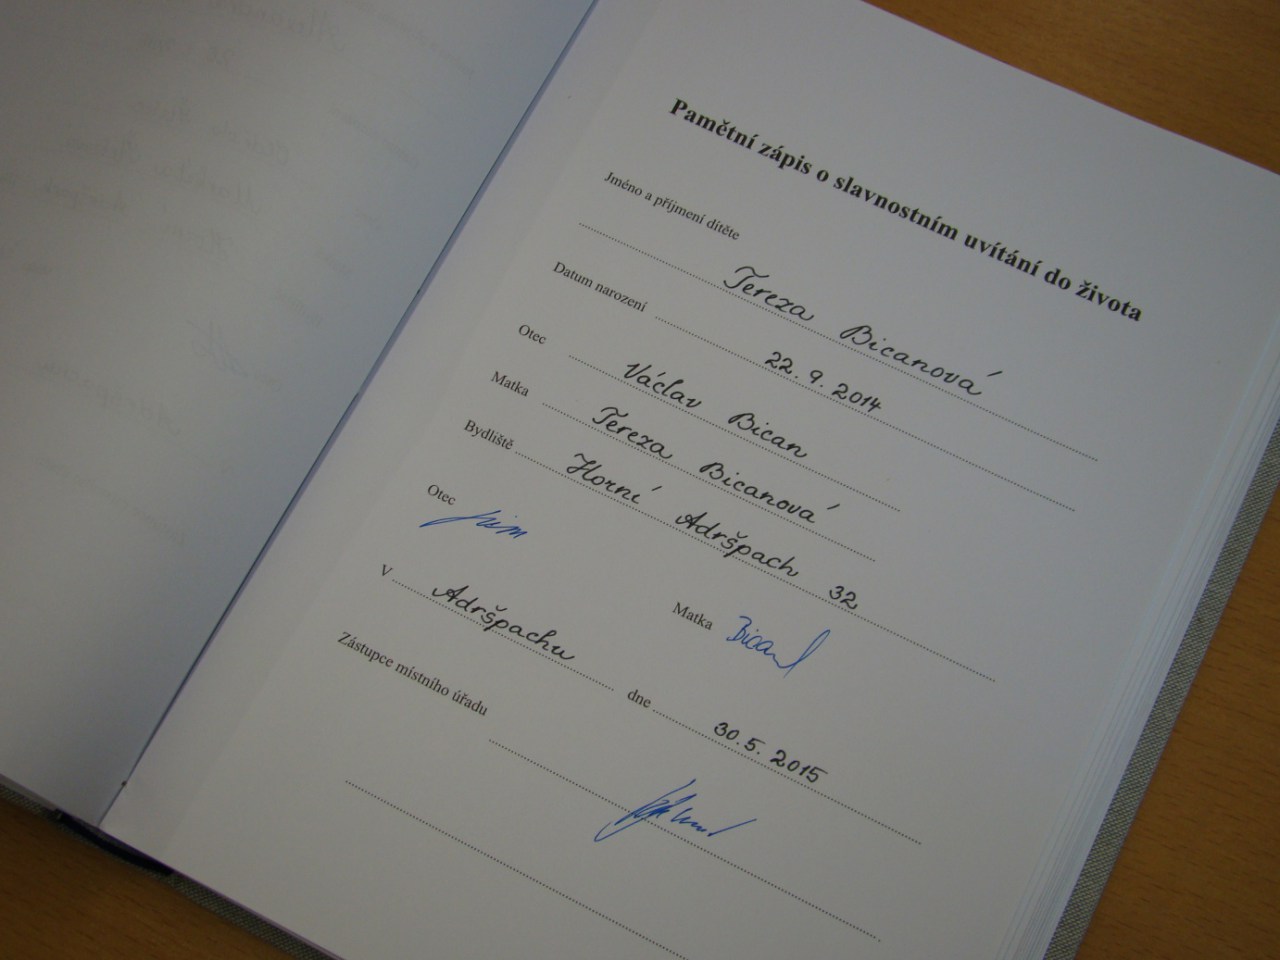 Pamětní zápis o slavnostním uvítání do života
Jméno a příjmení dítěte
Tereza Bicanová
Datum narození 22. 9. 2014
Otec Václav Bican
Matka Tereza Bicanová
Bydliště Horní Adršpach 32
Otec
Matka
V Adršpachu dne 30. 5. 2015
Zástupce místního úřadu